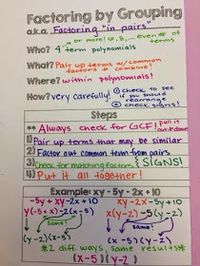 Factoring by Grouping
a.k.a. Factoring "in pairs"
or more! 6, 8, ... even # of terms
Who? 4 term polynomials
What? Pair up terms w/ common
factors & combine!
Where? within polynomials!
How? very carefully!
① check to see
if you should
rearrange
② check signs!
Steps
** Always check for GCF!
pull it
out & done
1) Pair up terms that may be similar
2) Factor out common term from pairs
3) Check for matching factors
SIGNS!
4) Put it all together!
Example: xy - 5y - 2x + 10
-5y + xy -2x +10
xy -2x -5y +10
y(-5+x) -2(x-5)
x(y-2) -5(y-2)
same!
same!
(y-2)(x-5)
(x-5)(y-2)
*2 diff. ways, same results*
(x-5)(y-2)